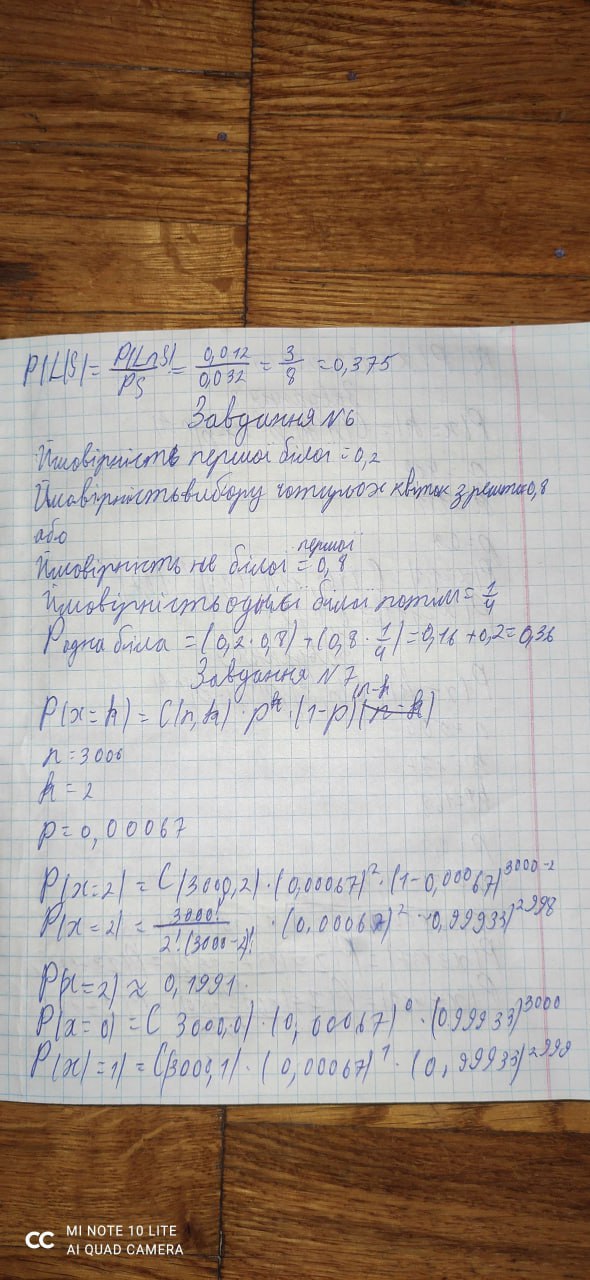 P(L|S) = P(L∩S) / PS = 0,012 / 0,032 = 3/8 = 0,375
Завдання №6
Ймовірність першої білої = 0,2
Ймовірність вибору чотирьох квіток з решти 0,8
або
Ймовірність не білої першої = 0,8
Ймовірність однієї білої потім = 1/4
P одна біла = (0,2 · 0,8) + (0,8 · 1/4) = 0,16 + 0,2 = 0,36
Завдання №7
P(x = k) = C(n, k) · p^k · (1-p)^(n-k)
n = 3000
k = 2
p = 0,00067
P(x = 2) = C(3000,2) · (0,00067)^2 · (1-0,00067)^3000-2
P(x = 2) = 3000! / 2!·(3000-2)! · (0,00067)^2 · 0,99933)^2998
P(x = 2) ≈ 0,1991.
P(x = 0) = C 3000,0) · (0,00067)^0 · (0,99933)^3000
P(x) = 1) = C(3000,1) · (0,00067)^1 · (0,99933)^2999
CC
MI NOTE 10 LITE
AI QUAD CAMERA